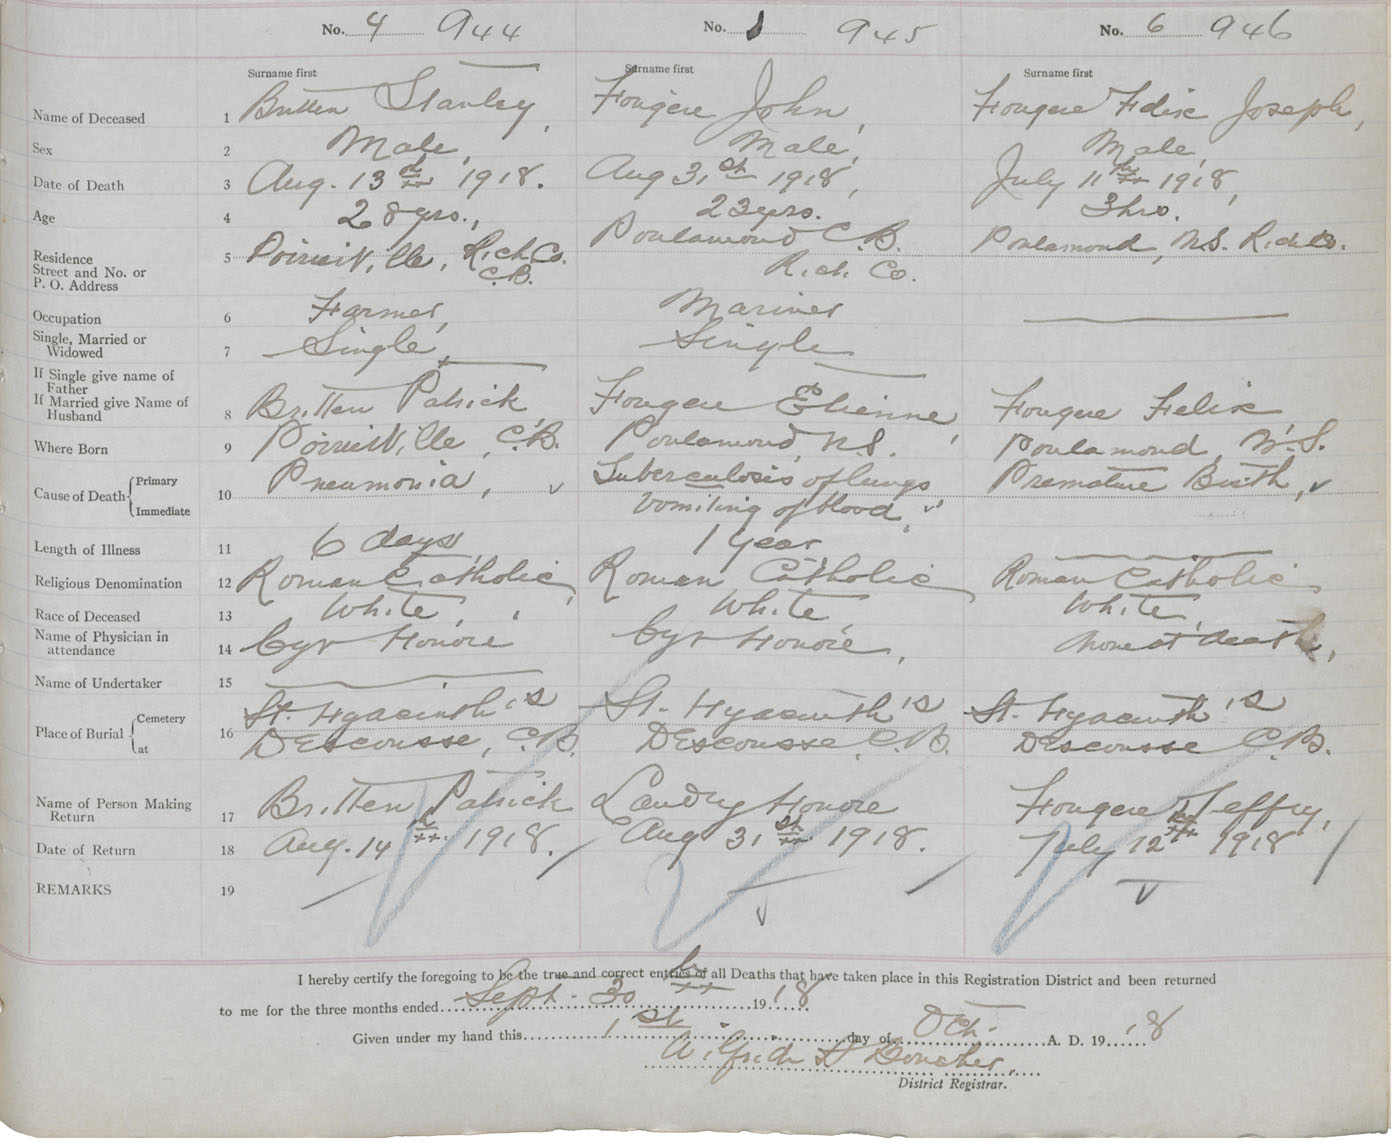 No. 4 944 No. 945 No. 6 946
Surname first Surname first Surname first
Name of Deceased 1 Britten Stanley, Fougere John, Fougere Felix Joseph,
Sex 2 Male, Male, Male,
Date of Death 3 Aug. 13th 1918. Aug 31st 1918, July 11th 1918,
Age 4 28 yrs., 23 yrs. 3 hrs.
Residence
Street and No. or
P. O. Address
5 Poirierville, Rich Co. C.B. Poulamond C.B. Rich. Co. Poulamond, N.S. Rich Co.
Occupation 6 Farmer, Mariner
Single, Married or
Widowed
7 Single, Single
If Single give name of
Father
If Married give Name of
Husband
8 Britten Patrick, Fougere Etienne, Fougere Felix
Where Born 9 Poirierville, C.B. Poulamond, N.S. Poulamond, N.S.
Cause of Death Primary
Immediate
10 Pneumonia, Tuberculosis of lungs Vomiting of blood, Premature Birth,
Length of Illness 11 6 days, 1 year
Religious Denomination 12 Roman Catholic, Roman Catholic Roman Catholic
Race of Deceased 13 White, White White,
Name of Physician in
attendance
14 Cyr Honoré Cyr Honoré, None at death,
Name of Undertaker 15
Place of Burial Cemetery
at
16 St. Hyacinth's St. Hyacinth's St. Hyacinth's
DEscousse, C.B. DEscousse C.B. DEscousse C.B.
Name of Person Making
Return
17 Britten Patrick Landry Honore Fougere Jeffry,
Date of Return 18 Aug. 14th 1918. Aug 31st 1918. July 12th 1918
REMARKS 19
I hereby certify the foregoing to be the true and correct entries of all Deaths that have taken place in this Registration District and been returned
to me for the three months ended Sept. 30th 1918
Given under my hand this 1st day of Oct. A. D. 1918
District Registrar.